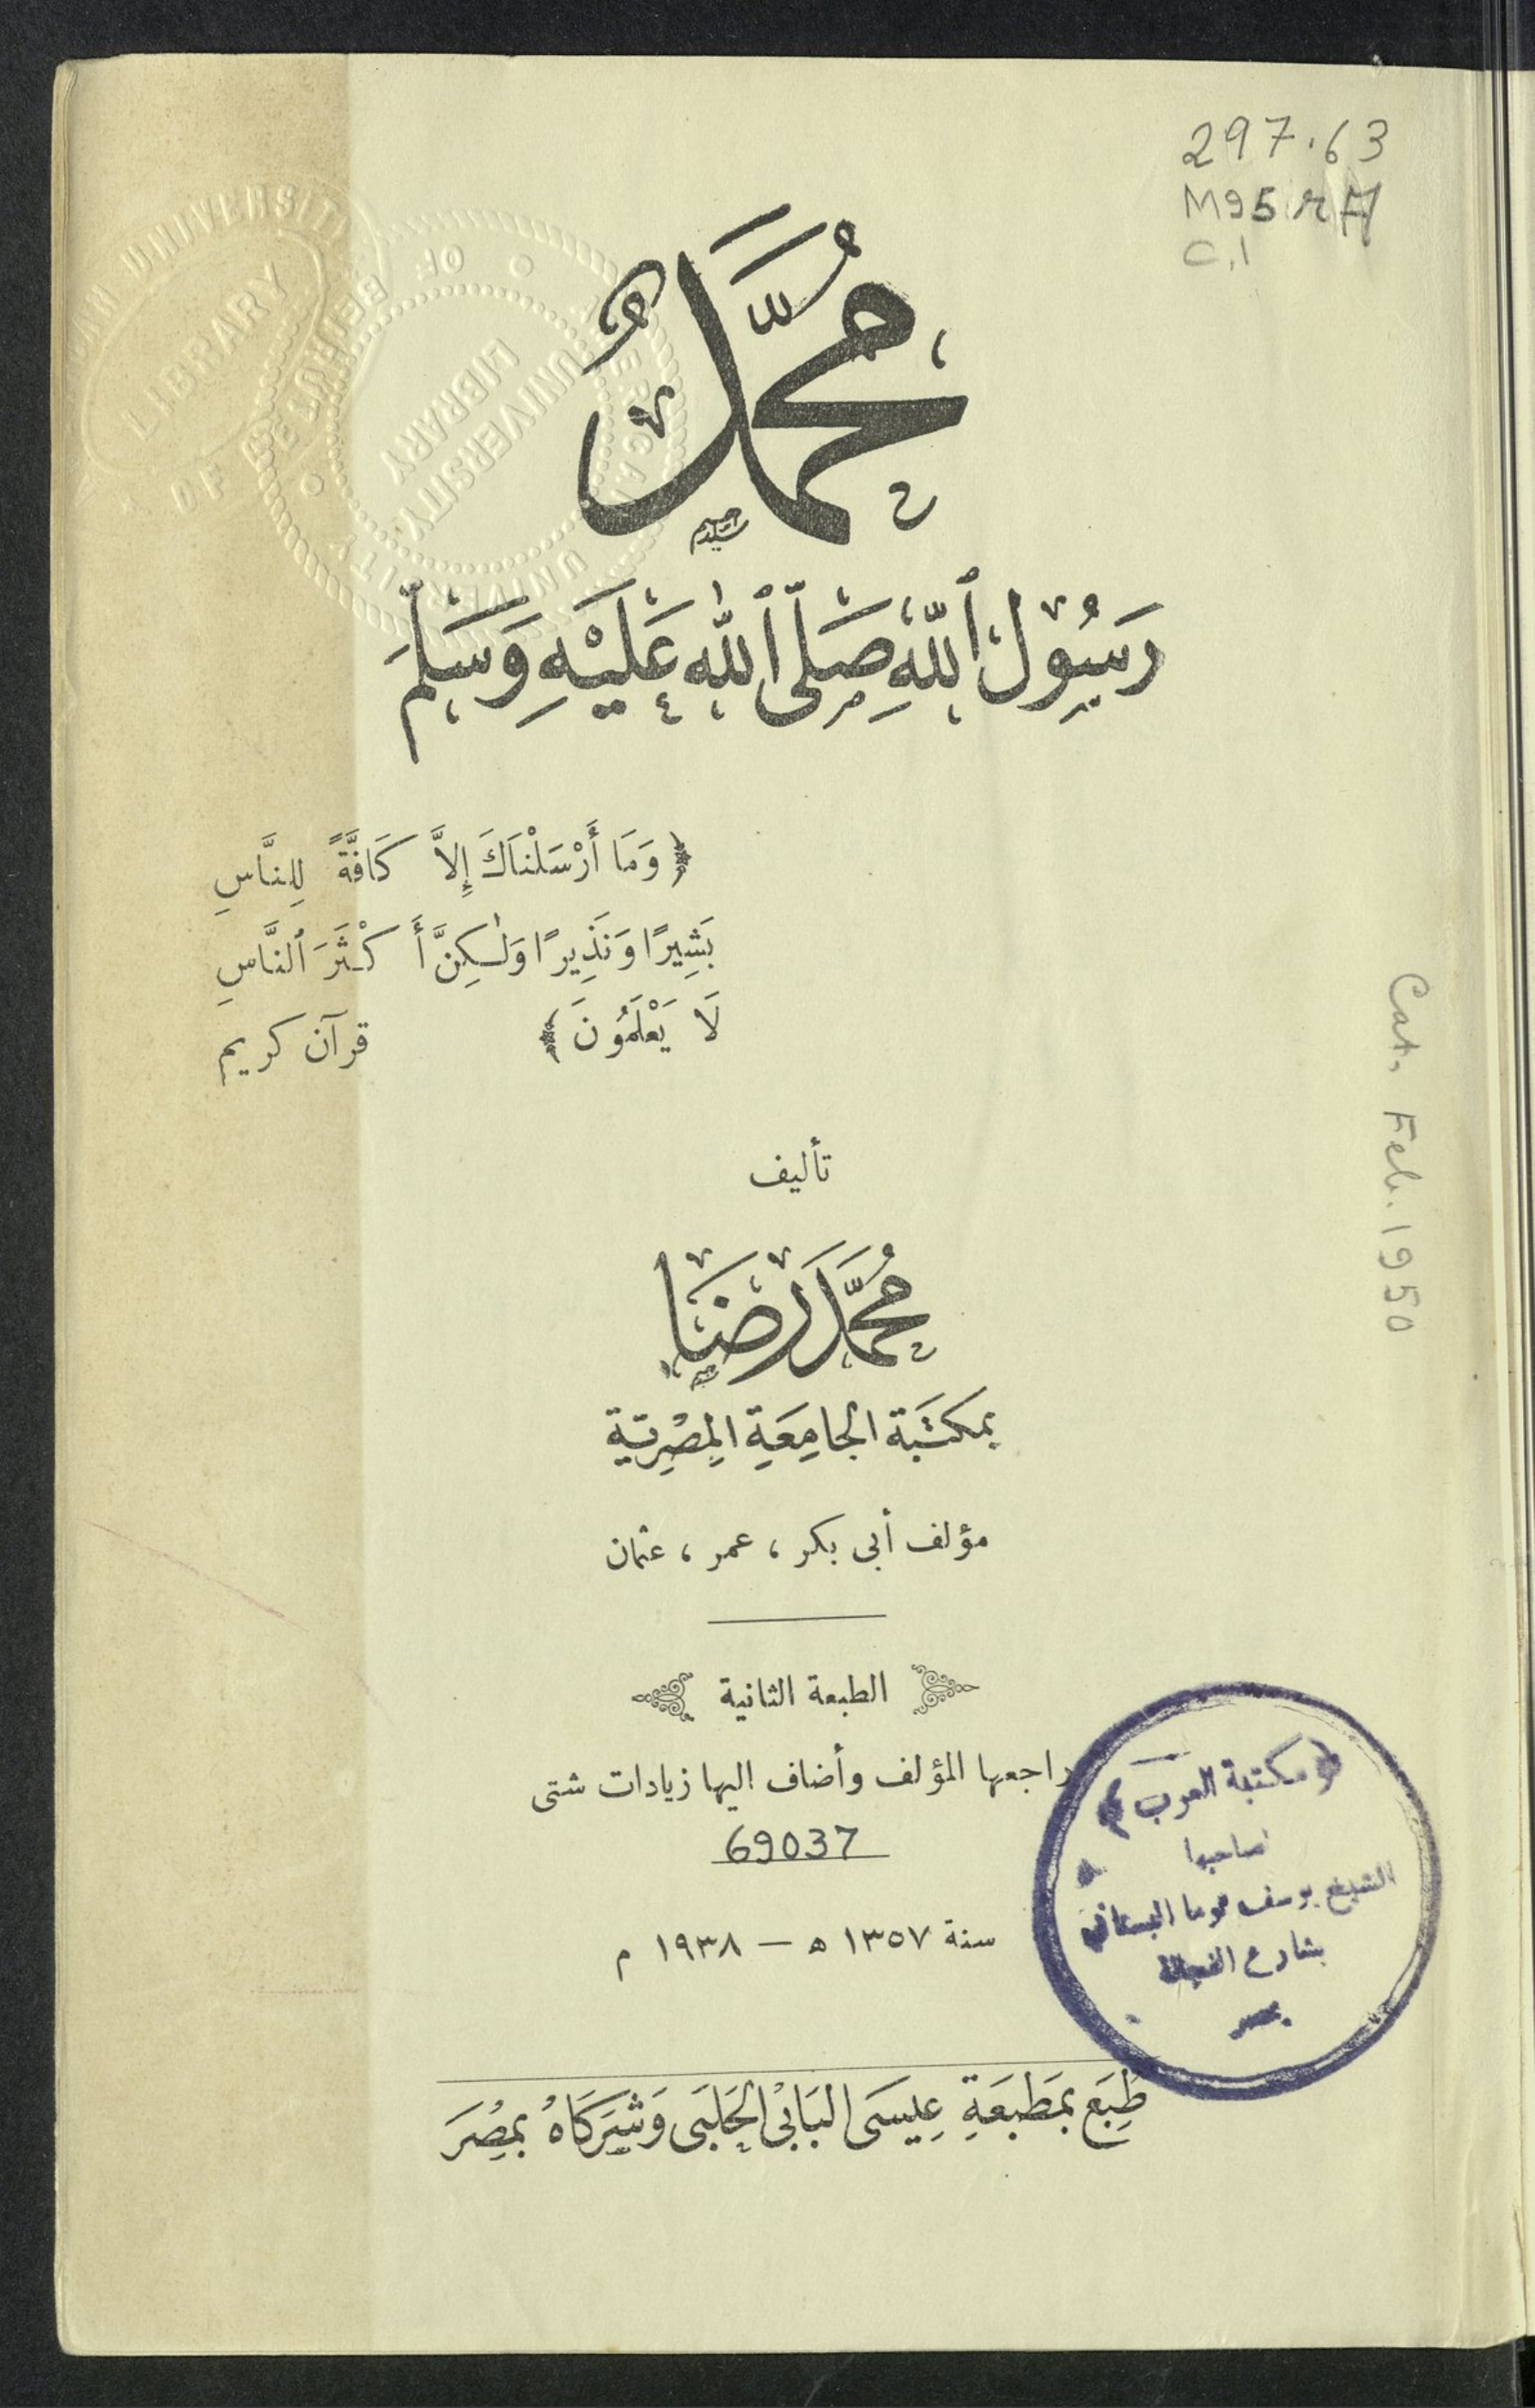 297.63
M95rA
C.1
مُحَمَّد
رَسُولُ ٱللّٰهِ صَلَّى ٱللّٰهُ عَلَيْهِ وَسَلَّمَ
﴿ وَمَا أَرْسَلْنَاكَ إِلاَّ كَافَّةً لِلنَّاسِ
بَشِيرًا وَنَذِيرًا وَلٰكِنَّ أَكْثَرَ ٱلنَّاسِ
لَا يَعْلَمُونَ ﴾ قرآن كريم
Cat. Feb. 1950
تأليف
مُحَمَّد رِضَا
بمكتَبَة الجامِعَةِ المِصْرِيّة
مؤلف أبى بكر ، عمر ، عثمان
الطبعة الثانية
راجعها المؤلف وأضاف اليها زيادات شتى
69037
سنة ١٣٥٧ ه — ١٩٣٨ م
﴿ مكتبة العرب ﴾
لصاحبها
الشيخ يوسف توما البستاني
بشارع الفجالة
بمصر
طُبِعَ بمَطبَعَةِ عِيسَى البَابْى الحَلَبَى وَشِرَكَاهُ بمِصْرَ
LIBRARY
OF BEIRUT
UNIVERSITY
LIBRARY